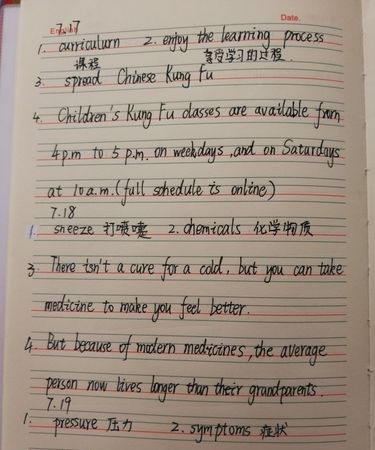 English
Date.
7.17
1. curriculum 2. enjoy the learning process
课程 享受学习的过程
3. spread Chinese Kung Fu
4. Children's Kung Fu classes are available from
4 p.m to 5 p.m. on weekdays, and on Saturdays
at 10 a.m. (full schedule is online)
7.18
1. sneeze 打喷嚏 2. chemicals 化学物质
3. There isn't a cure for a cold, but you can take
medicine to make you feel better.
4. But because of modern medicines, the average
person now lives longer than their grandparents.
7.19
1. pressure 压力 2. symptoms 症状